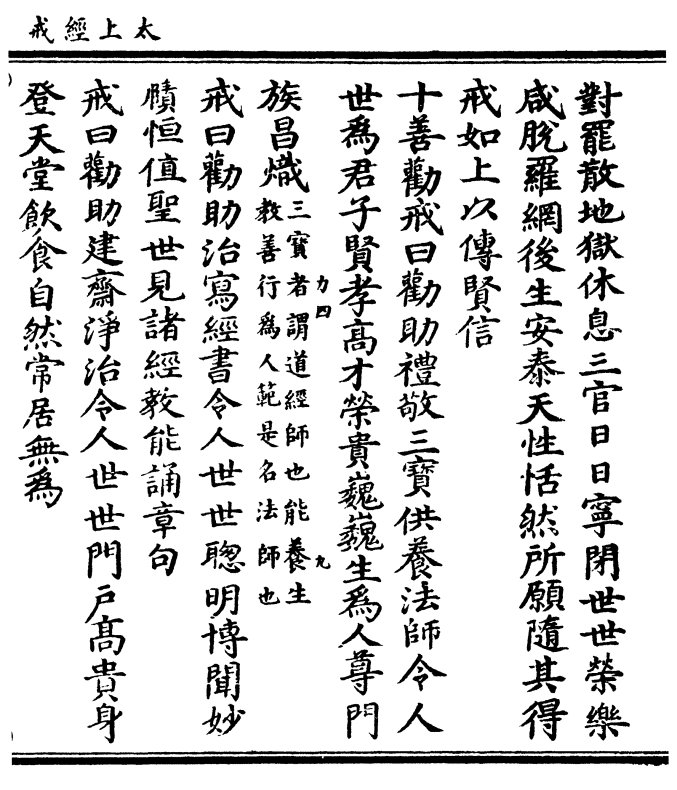 太上經戒
對罷散地獄休息三官日日寧閉世世榮樂
咸脫羅網後生安泰天性恬然所願隨其得
戒如上以傳賢信
十善勸戒曰勸助禮敬三寶供養法師令人
世為君子賢孝高才榮貴巍巍生為人尊門
力四
九
族昌熾三寶者謂道經師也能養生
教善行為人範是名法師也
戒曰勸助治寫經書令人世世聰明博聞妙
賾恒值聖世見諸經教能誦章句
戒曰勸助建齋淨治令人世世門戶高貴身
登天堂飲食自然常居無為